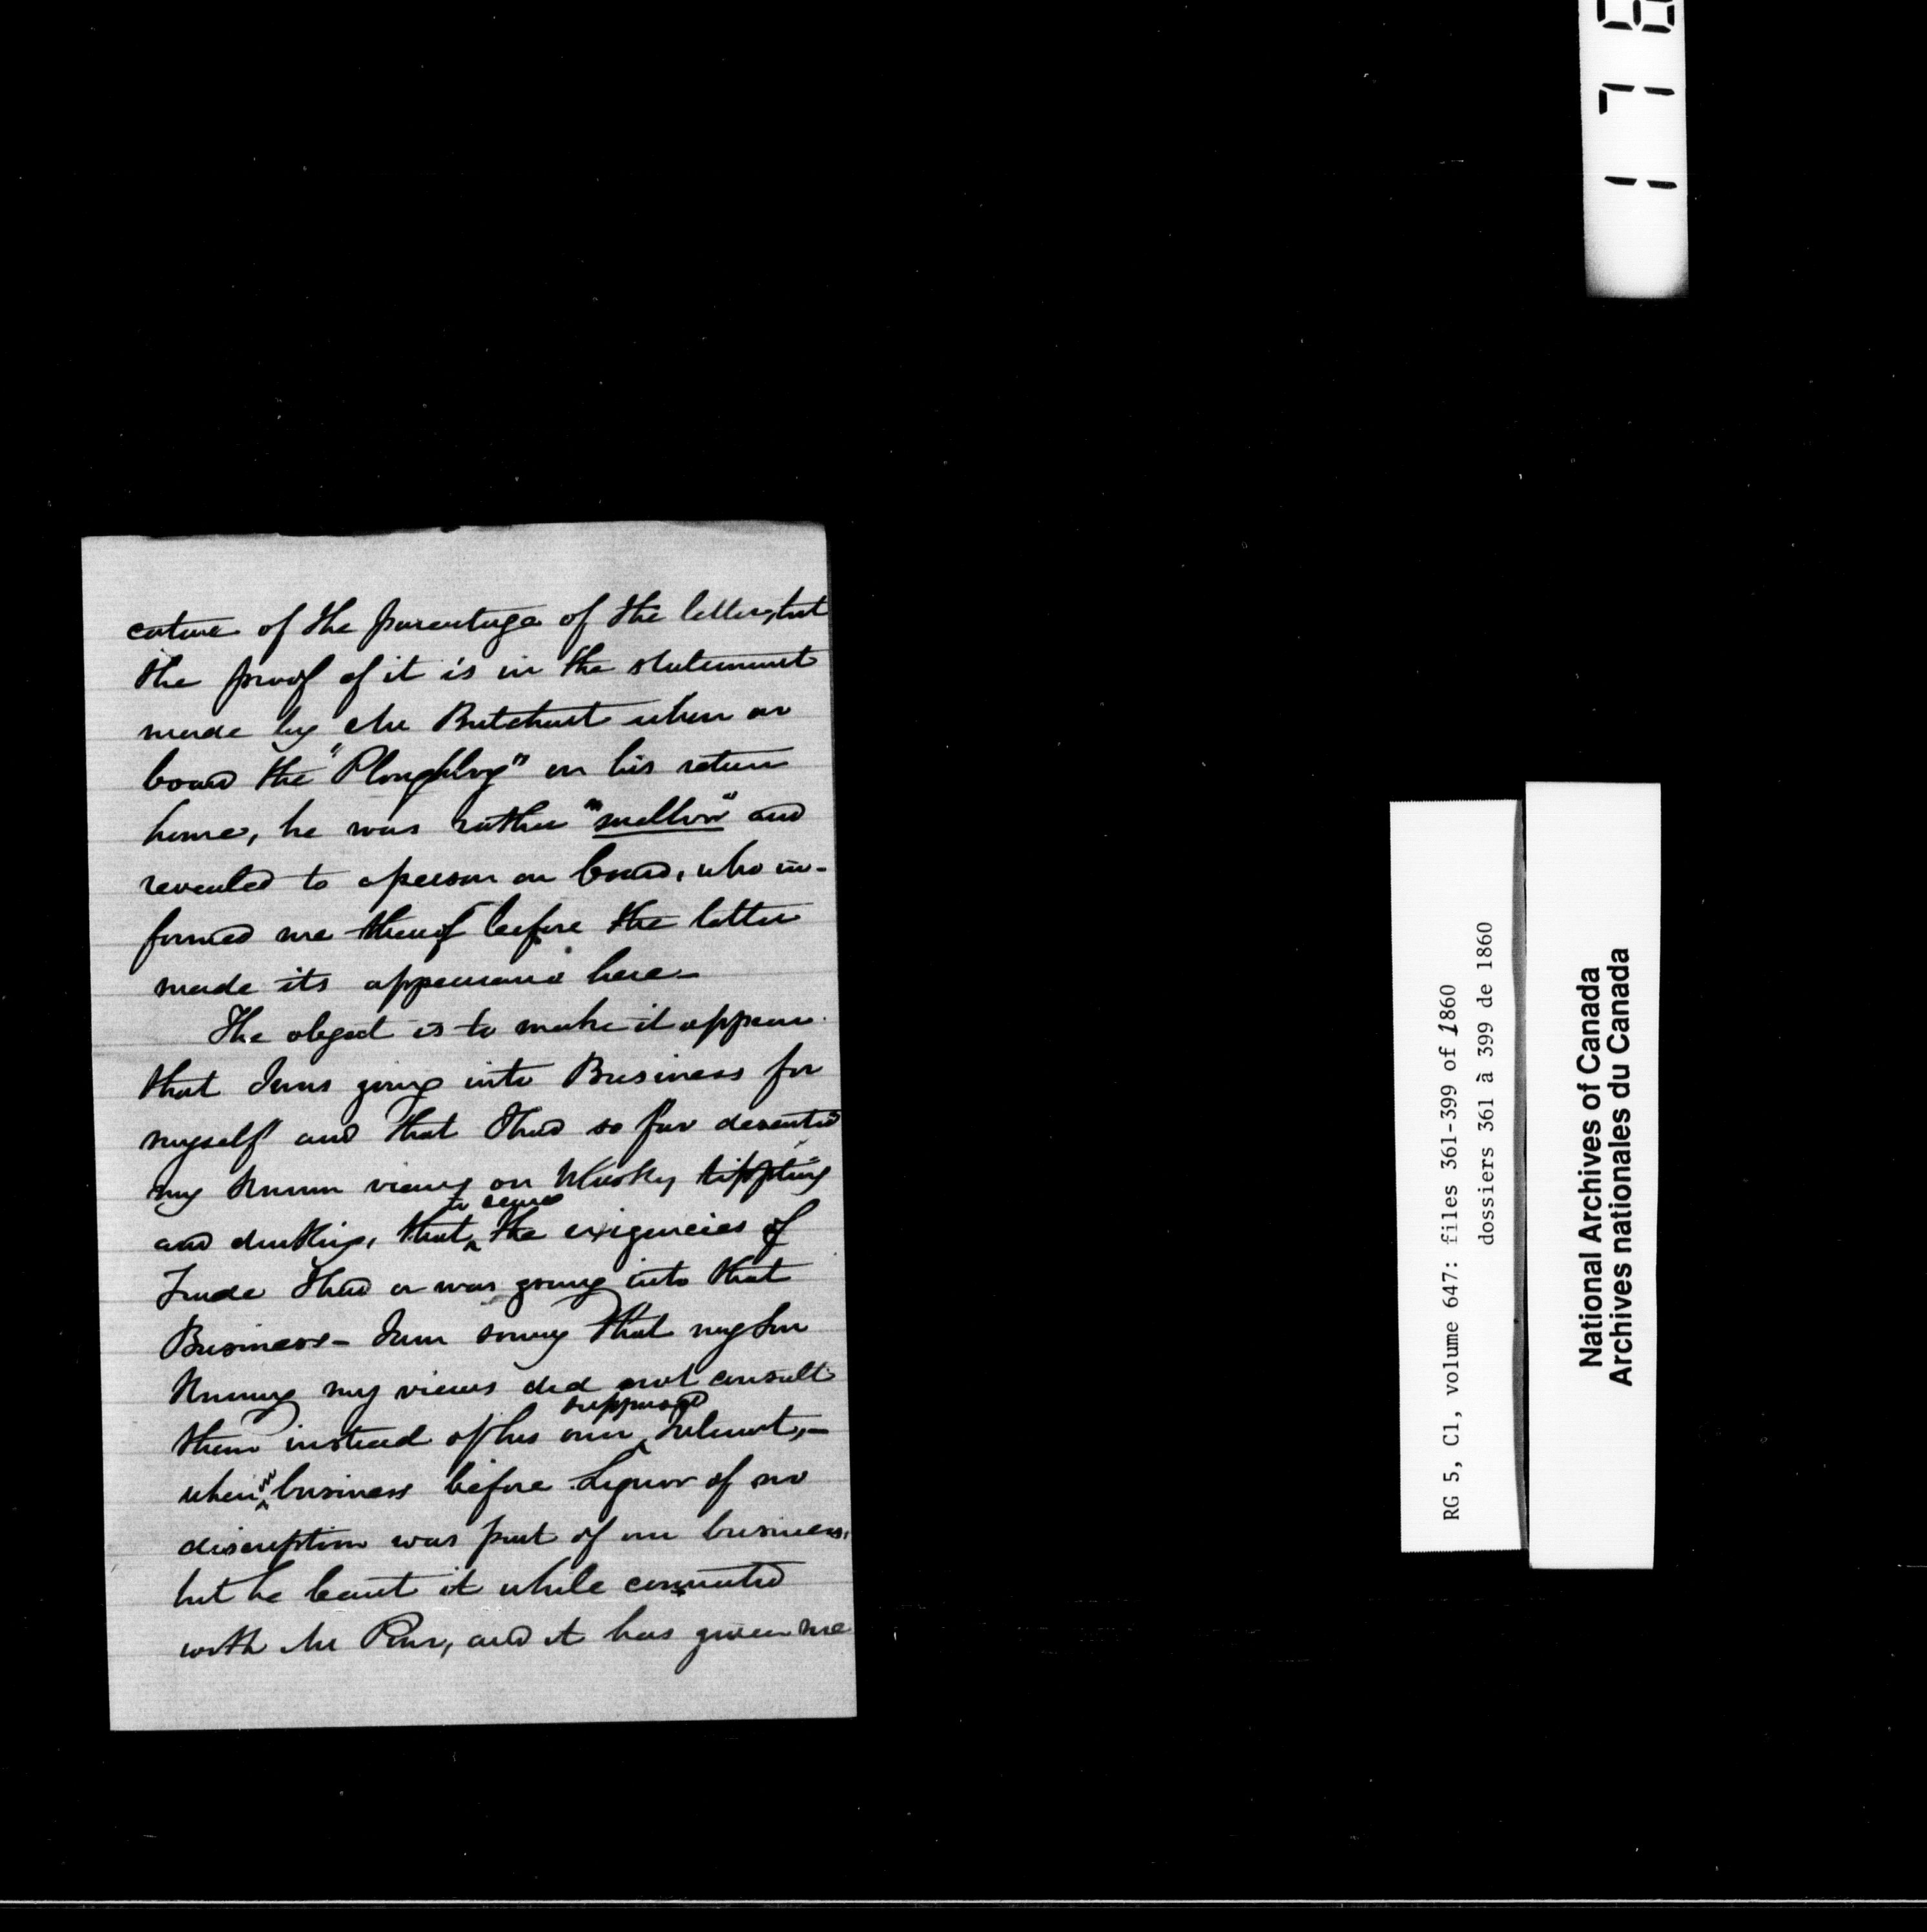 cature of the parentage of the letter, but
the proof of it is in the statement
made by Mr Butchart when on
board the "Ploughboy" on his return
home, he was rather "mellow" and
revealed to a person on board, who in-
formed me thereof before the letter
made its appearance here—
The object is to make it appear
that I was going into Business for
myself and that I had so far deserted
my known views on Whisky tippling
and drinking, that to serve the exigencies of
Trade I had or was going into that
Business— I am sorry that my Son
Knowing my views did not consult
them instead of his own supposed Interest,—
when in business before Liquor of no
discription was part of our business,
but he learnt it while connected
with Mr and it has given me
1 7 8
RG 5, C1, volume 647: files 361-399 of 1860
dossiers 361 à 399 de 1860
National Archives of Canada
Archives nationales du Canada